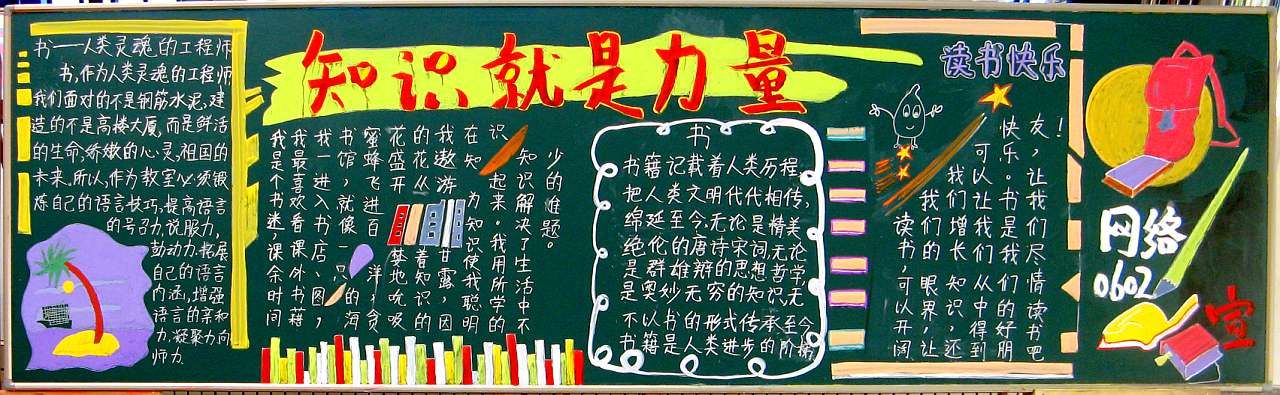 书——人类灵魂的工程师
书,作为人类灵魂的工程师
我们面对的不是钢筋水泥,建
造的不是高楼大厦,而是鲜活
的生命,娇嫩的心灵,祖国的
未来.所以,作为教室必须锻
炼自己的语言技巧,提高语言
的号召力,说服力,
鼓动力.拓展
自己的语言
内涵,增强
语言的亲和
力.凝聚力.向
师力.
知识就是力量
我是个书迷,课余时间
我最喜欢看课外书籍
我一进入书店、图,
书馆,就像一只的海
蜜蜂飞进百洋,贪
花盛开婪地吮吸
的花丛着知识的
我遨游甘露,因
在知为知识使我聪明
识起来。我用所学的
知识解决了生活中不
少的难题。
书
书籍记载着人类历程,
把人类文明代代相传,
绵延至今,无论是精美
绝伦的唐诗宋词,无论
是群雄辩的思想哲学
是奥妙无穷的知识无
不以书的形式传承至今
书籍是人类进步的阶梯
读书快乐
读书,可以开阔
我们的眼界,让
我们增长知识,还
可以让我们从中得到
快乐。书是我们的好朋
友,让我们尽情读书吧
!
网络
0602
宣